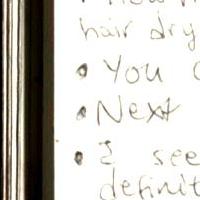 hair dry
• You
• Next
• I see
definit